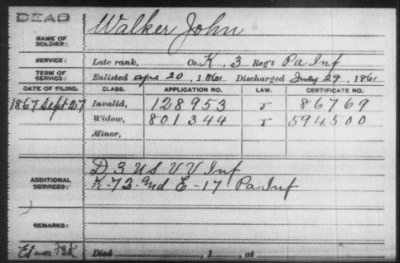 DEAD
NAME OF SOLDIER: Walker John
SERVICE: Late rank, Co. K, 3 Reg't Pa Inf
TERM OF SERVICE: Enlisted Apr 20, 1861 Discharged July 29, 1861
DATE OF FILING. CLASS. APPLICATION NO. LAW. CERTIFICATE NO.
1867 Sept 27 Invalid, 128953 86769
Widow, 801344 594500
Minor,
D 3 US V V Inf
ADDITIONAL SERVICES: K-72 and E-17 Pa Inf
REMARKS:
Died , 1 , at